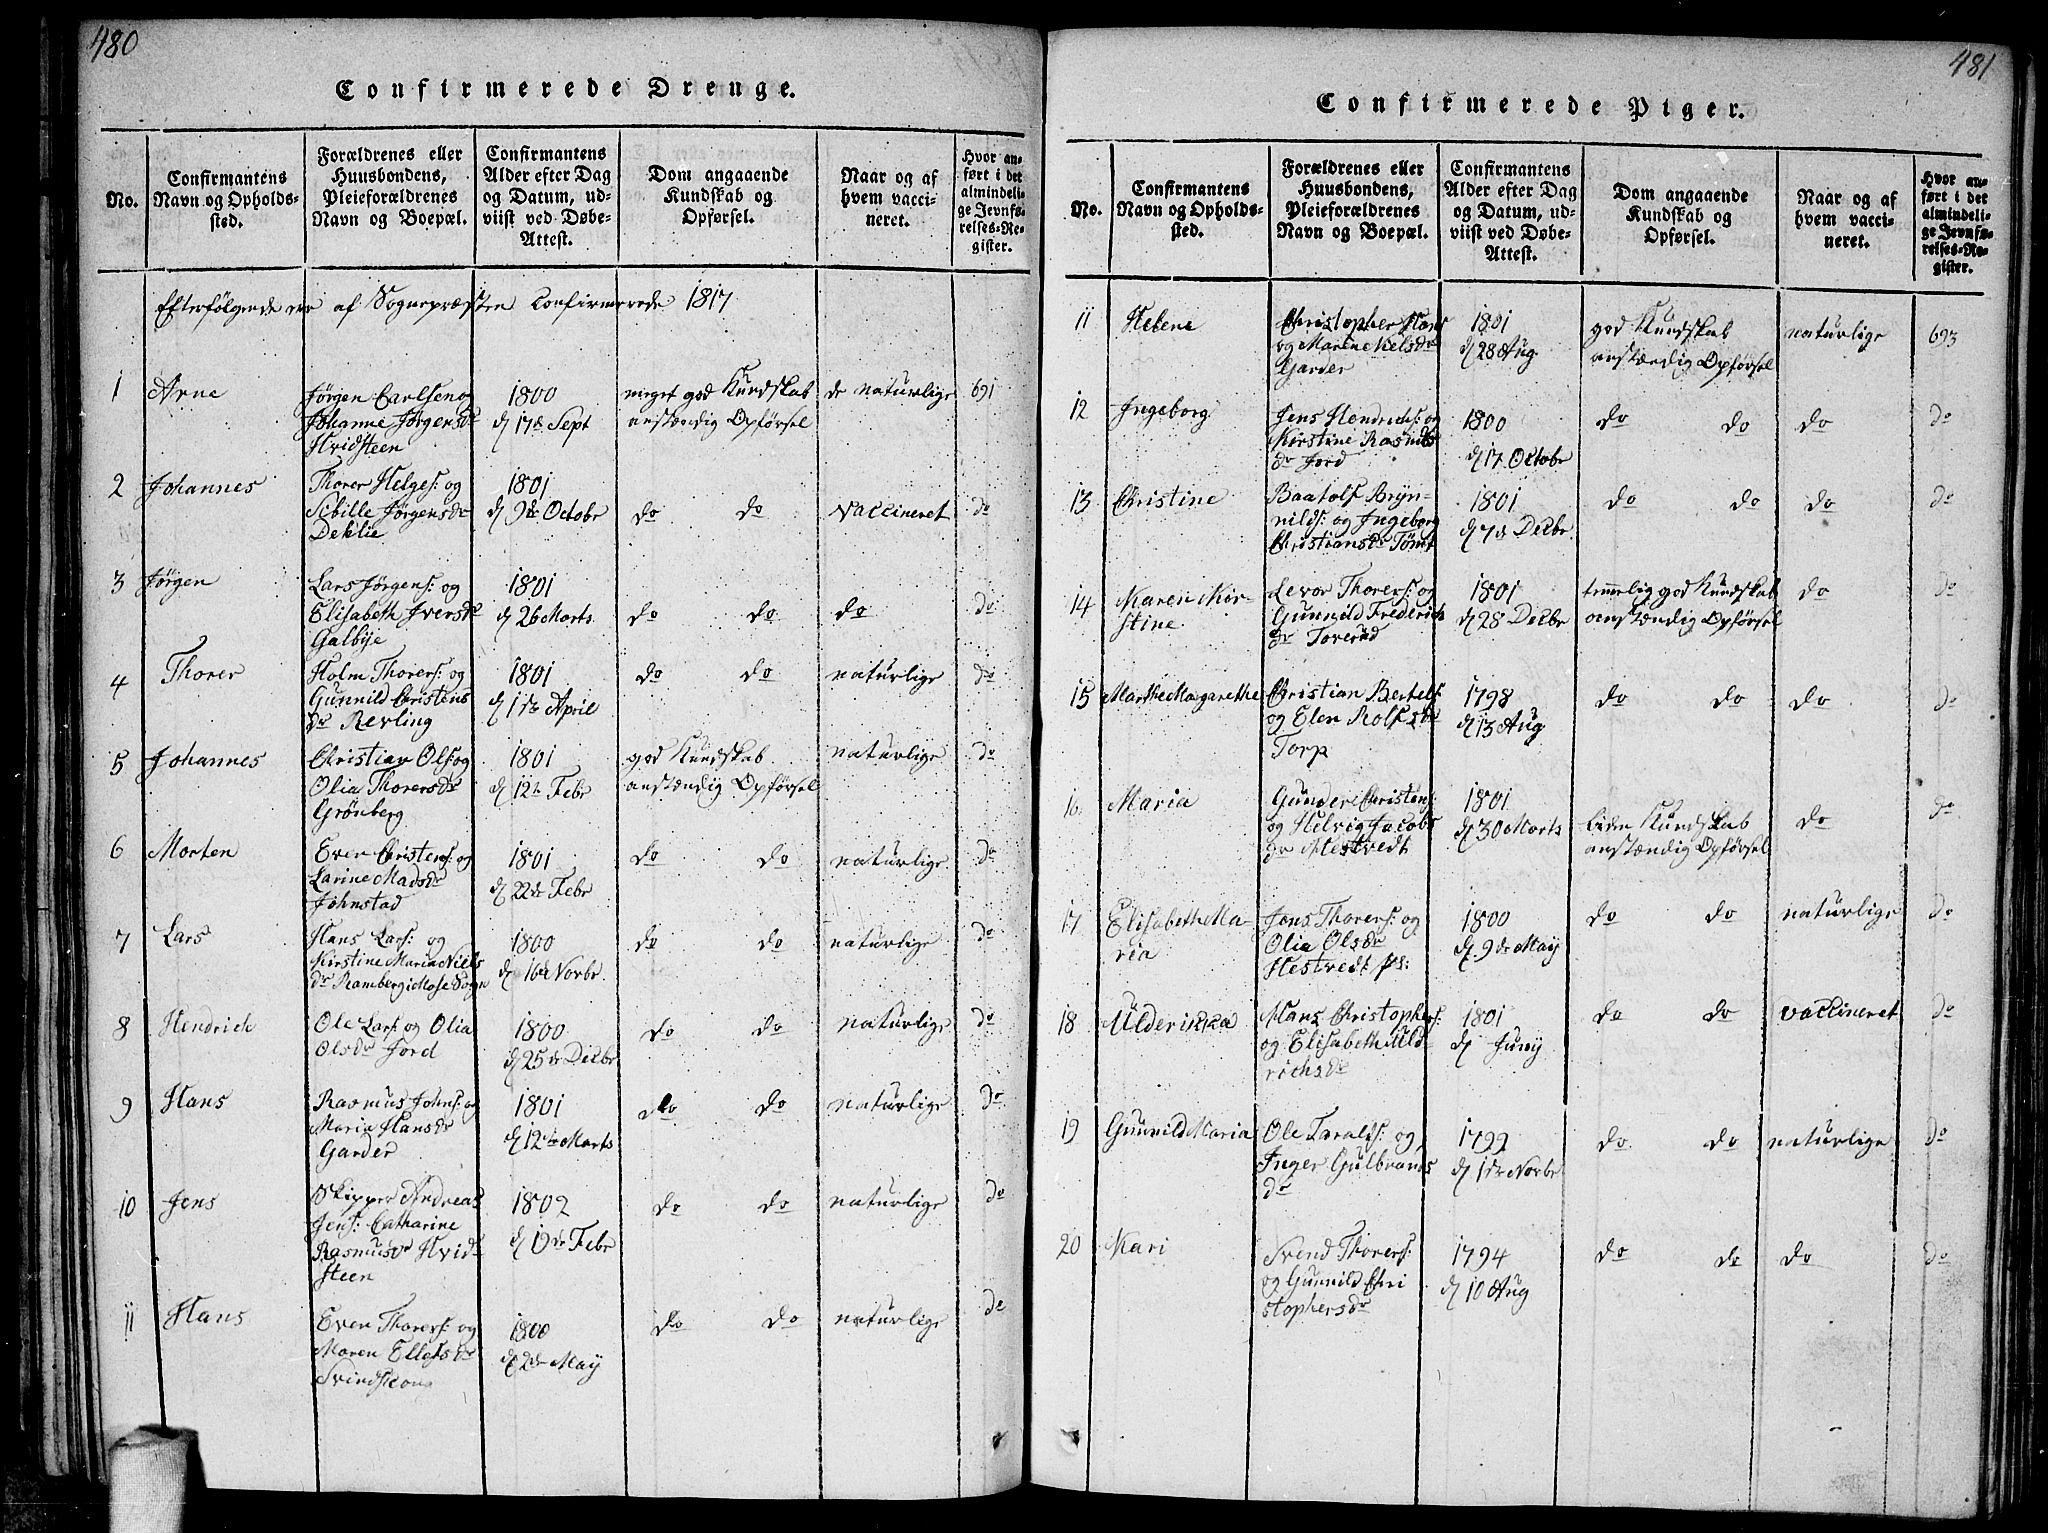 480
Confirmerede Drenge.
No.
Confirmantens
Navn og Opholds-
sted.
Forældrenes eller
Huusbondens,
Pleieforældrenes
Navn og Boepæl.
Confirmantens
Alder efter Dag
og Datum, ud-
viist ved Døbe-
Attest.
Dom angaaende
Kundskab og
Opførsel.
Naar og af
hvem vacci-
neret.
Hvor an-
ført i det
almindeli-
ge Jevnfø-
relses-Re-
gister.
Efterfølgende ere af Sognepræsten Confirmerede 1817
1 Arne
Jørgen Carlsen og
Johanne Jørgensdr
Hvidsteen
1800
d 17de Sept
meget god Kundskab
anstændig Opførsel
de naturlige
691
2 Johannes
Thorer Helges: og
Sibille Jørgensdr
Deklie
1801
d 9de Octobr
do do
vaccineret
do
3 Jørgen
Lars Jørgens: og
Elisabeth Iversdr
Galbye
1801
d 26 Marts
do do
do
do
4 Thorer
Holm Thorers: og
Gunnild Christens
dr Revling
1801
d 1ste April
do do
naturlige
do
5 Johannes
Christian Ols: og
Olia Thorersdr
Grønberg
1801
d 12te Febr
god Kundskab
anstændig Opførsel
naturlige
do
6 Morten
Even Christens: og
Larine Madsdr
Johnstad
1801
d 22de Febr
do do
naturlige
do
7 Lars
Hans Lars: og
Kirstine Maria Niels
dr Ramberg i Mose Sogn
1800
d 16de Novbr
do do
naturlige
do
8 Hendrich
Ole Lars: og Olia
Olsdr Jord
1800
d 25de Decbr
do do
naturlige
do
9 Hans
Rasmus Johns: og
Maria Hansdr
Garder
1801
d 12te Marts
do do
naturlige
do
10 Jens
Skipper Andreas
Jens: Catharine
Rasmusdr Hvid-
steen
1802
d 19de Febr
do do
naturlige
do
11 Hans
Even Thorers: og
Maren Ellefsdr
1800
d 2de May
do do
naturlige
do
481
Confirmerede Piger.
No.
Confirmantens
Navn og Opholds-
sted.
Forældrenes eller
Huusbondens,
Pleieforældrenes
Navn og Boepæl.
Confirmantens
Alder efter Dag
og Datum, ud-
viist ved Døbe-
Attest.
Dom angaaende
Kundskab og
Opførsel.
Naar og af
hvem vacci-
neret.
Hvor an-
ført i det
almindeli-
ge Jevnfø-
relses-Re-
gister.
11 Helene
Christopher Hans
og Maren Nelsdr
Garder
1801
d 28 Aug
god Kundskab
anstændig Opførsel
naturlige
693
12 Ingeborg
Jens Hendrichs: og
Kirstine Rasmus
dr Jord
1800
d 17 Octobr
do do
do
do
13 Christine
Baatolf Bryn-
nilds: og Ingeborg
Christiansdr Tømt
1801
d 7de Decbr
do do
do
do
14 Maren Kir-
stine
Levor Thorers: og
Gunnild Frederich
dr Toverud
1801
d 28 Decbr
temmelig god Kundskab
anstændig Opførsel
do
do
15 Marthe Margarethe
Christian Bertels:
og Elen Rolfsdr
Torp
1798
d 13 Aug
do do
do
do
16 Maria
Gunder Christens:
og Helvig Jacobs
dr Hestvedt
1801
d 30 Marts
liden Kundskab
anstændig Opførsel
do
do
17 Elisabeth Ma-
ria
Jens Thorers: og
Olia Olsdr
Hestvedt
1800
d 9de May
do do
naturlige
do
18 Ulderikka
Hans Christophers:
og Elisabeth Uld-
richsdr
1801
d Juny
do do
vaccineret
do
19 Gunnild Maria
Ole Taralds: og
Inger Gulbrans
dr
1799
d 1ste Novbr
do do
naturlige
do
20 Kari
Svend Thorers:
og Gunnild Chri
stophersdr
1794
d 10 Aug
do do
do
do